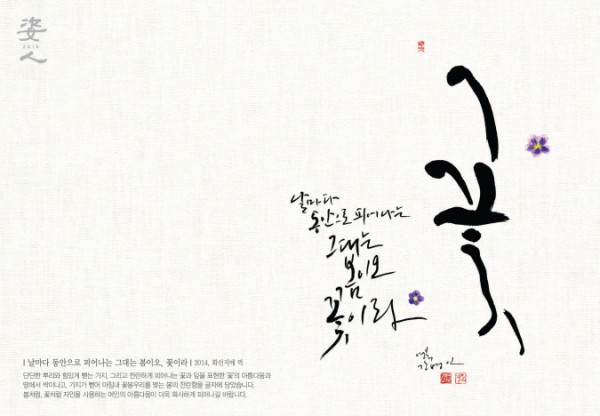 姿
人
꽃
날마다
동안으로 피어나는
그대는
봄이오
꽃이라
| 날마다 동안으로 피어나는 그대는 봄이오, 꽃이라 | 2014, 화선지에 먹
단단한 뿌리와 힘있게 뻗는 가지, 그리고 찬란하게 피어나는 꽃과 잎을 표현한 '꽃'의 아름다움과
땅에서 싹이나고, 가지가 뻗어 마침내 꽃봉우리를 맺는 봄의 찬란함을 글자에 담았습니다.
봄처럼, 꽃처럼 자인을 사용하는 여인의 아름다움이 더욱 화사하게 피어나길 바랍니다.